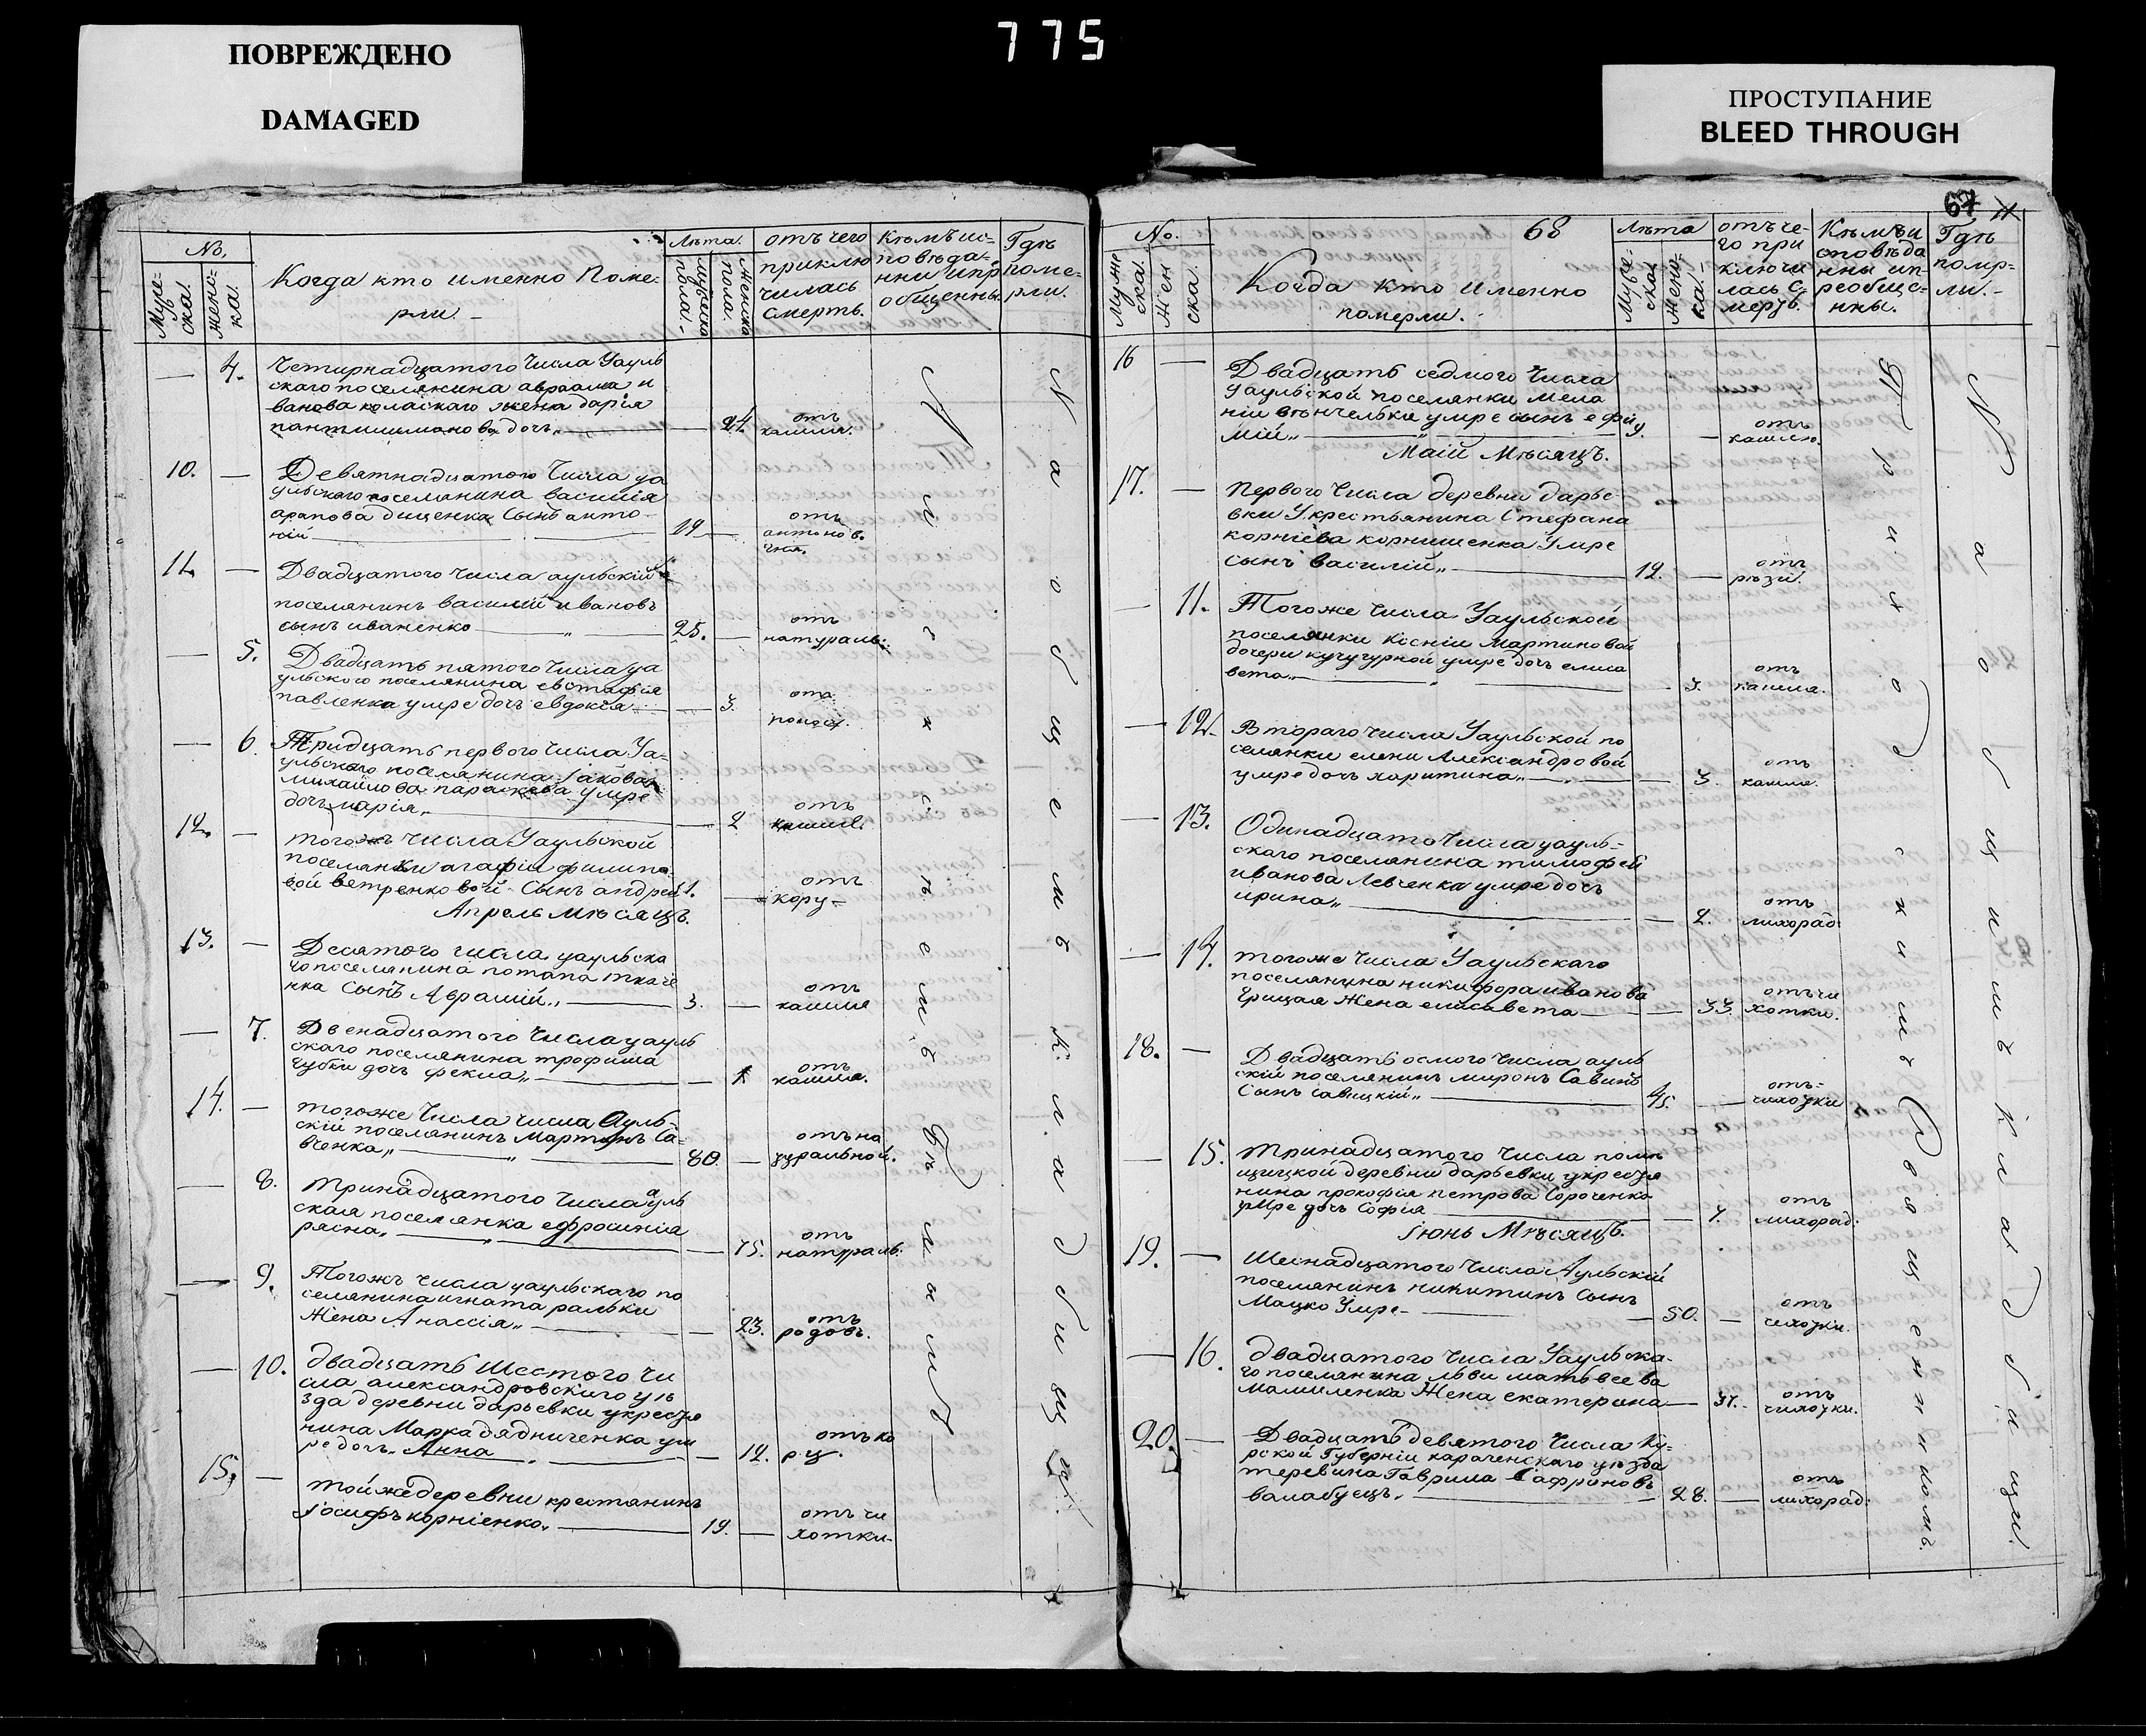 775
ПОВРЕЖДЕНО
DAMAGED
ПРОСТУПАНИЕ
BLEED THROUGH
№.
Муже-
ска.
женс-
ка.
Когда кто именно Поме-
рли.
Лѣта.
мужеска
пола.
женска
пола.
отъ чего
приклю
чилась
смерть.
Кѣмъ ис-
повѣда-
нни ипр
общенны.
Гдѣ
поме-
рли.
4.
Четырнадцатого Числа Уауль
скаго поселянина авраама и
ванова коласкаго жена дарія
дочъ
24.
отъ
кашля.
10.
Девятнадцатого Числа уа
ульскаго поселянина василія
арапова дищенка Сынъ анто-
ній
19
отъ
антонов.
гня.
11.
Двадцатого Числа аульскій
поселянинъ василій ивановъ
сынъ иваненко
25.
отъ
натураль:
5.
Двадцать пятого Числа уа
ульского поселянина евстафія
павленка умре дочъ евдокія
3.
отъ
понос.
6.
Тридцать первого Числа Уа-
ульскаго поселянина Іакова
михайлова параскева умре
дочъ марія
2
отъ
кашля.
12.
тогожъ Числа Уаульской
поселянки агафіи филипо
вой ветренковой Сынъ андрей
1.
отъ
кору-
Апрель Мѣсяцъ.
13.
Десятого числа уаульска
го поселянина потапа ткаче
нка Сынъ Аврамій
3.
отъ
кашля
7.
Двенадцатого Числа уауль
скаго поселянина трофима
Чубки дочъ фекла
1
отъ
кашля.
14.
тогоже Числа числа Ауль-
скій поселянинъ Мартинъ Са-
вченка
80.
отъ на
туральной.
8.
тринадцатого Числа ауль
ская поселянка ефросинія
расна
75.
отъ
натураль.
9.
Тогожъ Числа уаульскаго по
селянина игната ральки
Жена Анассія
23.
отъ
родовъ.
10.
двадцать Шестого Чи
сла александровскиго уѣ
зда деревни дарьевки укрестя
нина Марка дядниченка ум
ре дочъ Анна
12.
отъ ко
ру.
15.
той же деревни крестянинъ
Іосифъ корніенко
19.
отъ чи
хотки
Априсе:
не былъ
На общемъ кладбищи
67
11
68
№.
Муже
ска.
Жен
ска.
Когда кто именно
померли.
Лѣта
Муже-
ска
Женс-
ка.
отъ че-
го при
ключи
лась с
мерть.
Кѣмъ и
сповѣда
нны ип-
реобще-
нны.
Гдѣ
помр-
ли.
16
Двадцать седмого Числа
Уаульской поселянки Мела
ніи вѣнчельки умре сынъ ефи
мій
9.
отъ
кашлю.
Маій Мѣсяцъ.
17.
Первого Числа деревни дарье-
вки Укрестьянина Стефана
корніева корнишенка Умре
Сынъ василій
12.
отъ
рѣзи.
11.
Тогоже Числа Уаульской
поселянки ксеніи Мартиновой
дочери кучугурной умре дочъ елиса
вета
3.
отъ
кашля.
12.
Второго Числа Уаульской по
селянки елени Александровой
умре дочъ харитина
3.
отъ
кашля.
13.
Одинадцато Числа уауль-
скаго поселянина тимофей
иванова Левченка умре дочъ
ирина
2.
отъ
лихорад:
14.
тогоже Числа Уаульскаго
поселянина никифора иванова
Грицая Жена елисавета
33.
отъ чи
хотки.
18.
Двадцать осмого Числа ауль
скій поселянинъ миронъ Савинъ
Сынъ савицкій
45.
отъ-
чихотки
15.
тринадцатого Числа помѣ
щицкой деревни дарьевки укрестя
нина прокофія петрова Сороченко
умре дочъ Софія
7.
отъ
лихорад:
Іюнь Мѣсяцъ.
19.
Шеснадцатого Числа Аульскій
поселянинъ никитинъ Сынъ
Мацко Умре
50.
отъ
чихотки.
16.
двадцатого Числа Уаульска-
го поселянина льви матвеева
мамиленка Жена екатерина
37.
отъ
чихотки.
20.
Двадцать девятого Числа Ку-
рской Губерніи караченскаго уѣзда
Гаврила Сафроновъ
балабуецъ
28.
отъ
лихорад:
Приходскимъ Священникомъ.
На общимъ кладбищи.